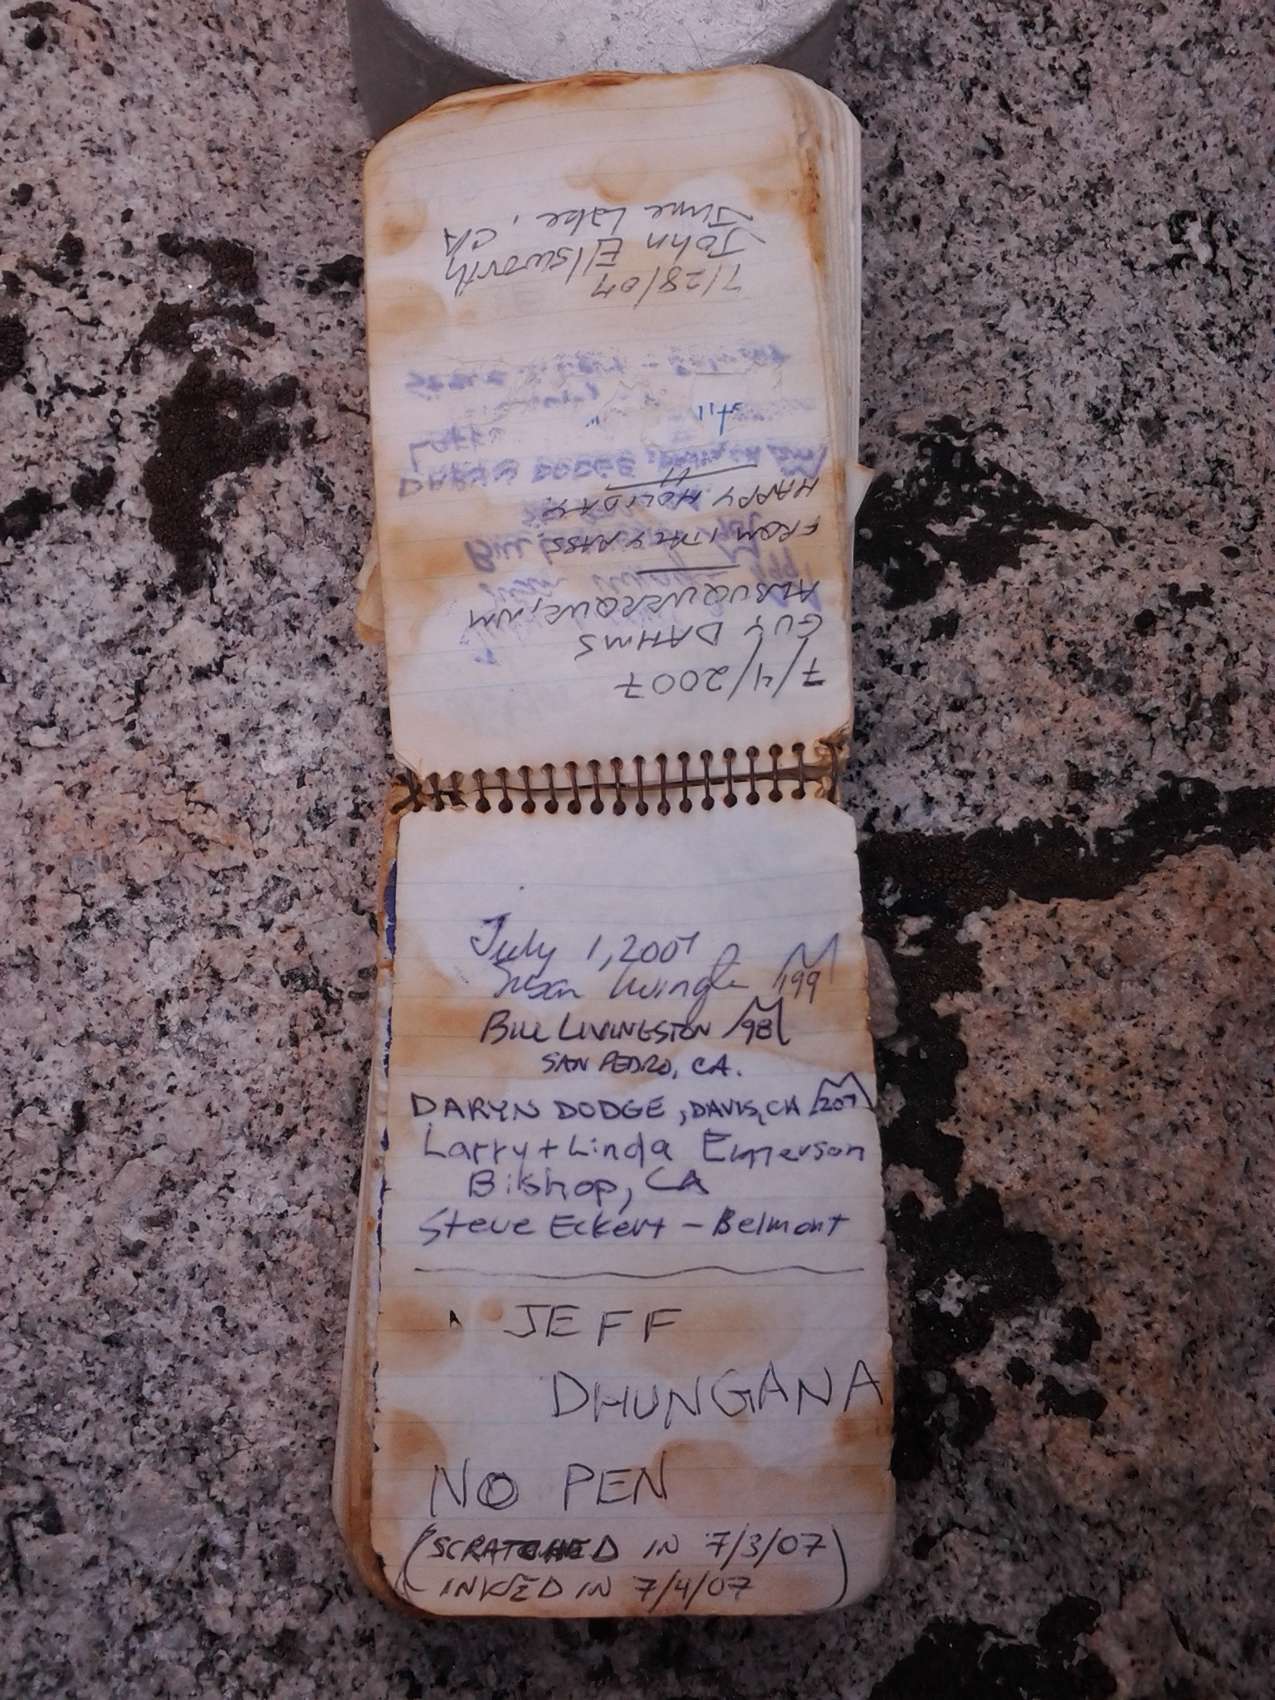 July 1, 2007
Susan 199
BILL LIVINGSTON 98
SAN PEDRO, CA.
DARYN DODGE, DAVIS, CA 207
Larry + Linda Emerson
Bishop, CA
Steve Eckert - Belmont
JEFF
DHUNGANA
NO PEN
(SCRATCHED IN 7/3/07)
INKED IN 7/4/07
7/4/2007
GUY DAHMS
ALBUQUERQUE, NM
FROM PASS
HAPPY HOLIDAY
7/28/07
John Ellsworth
June Lake, CA